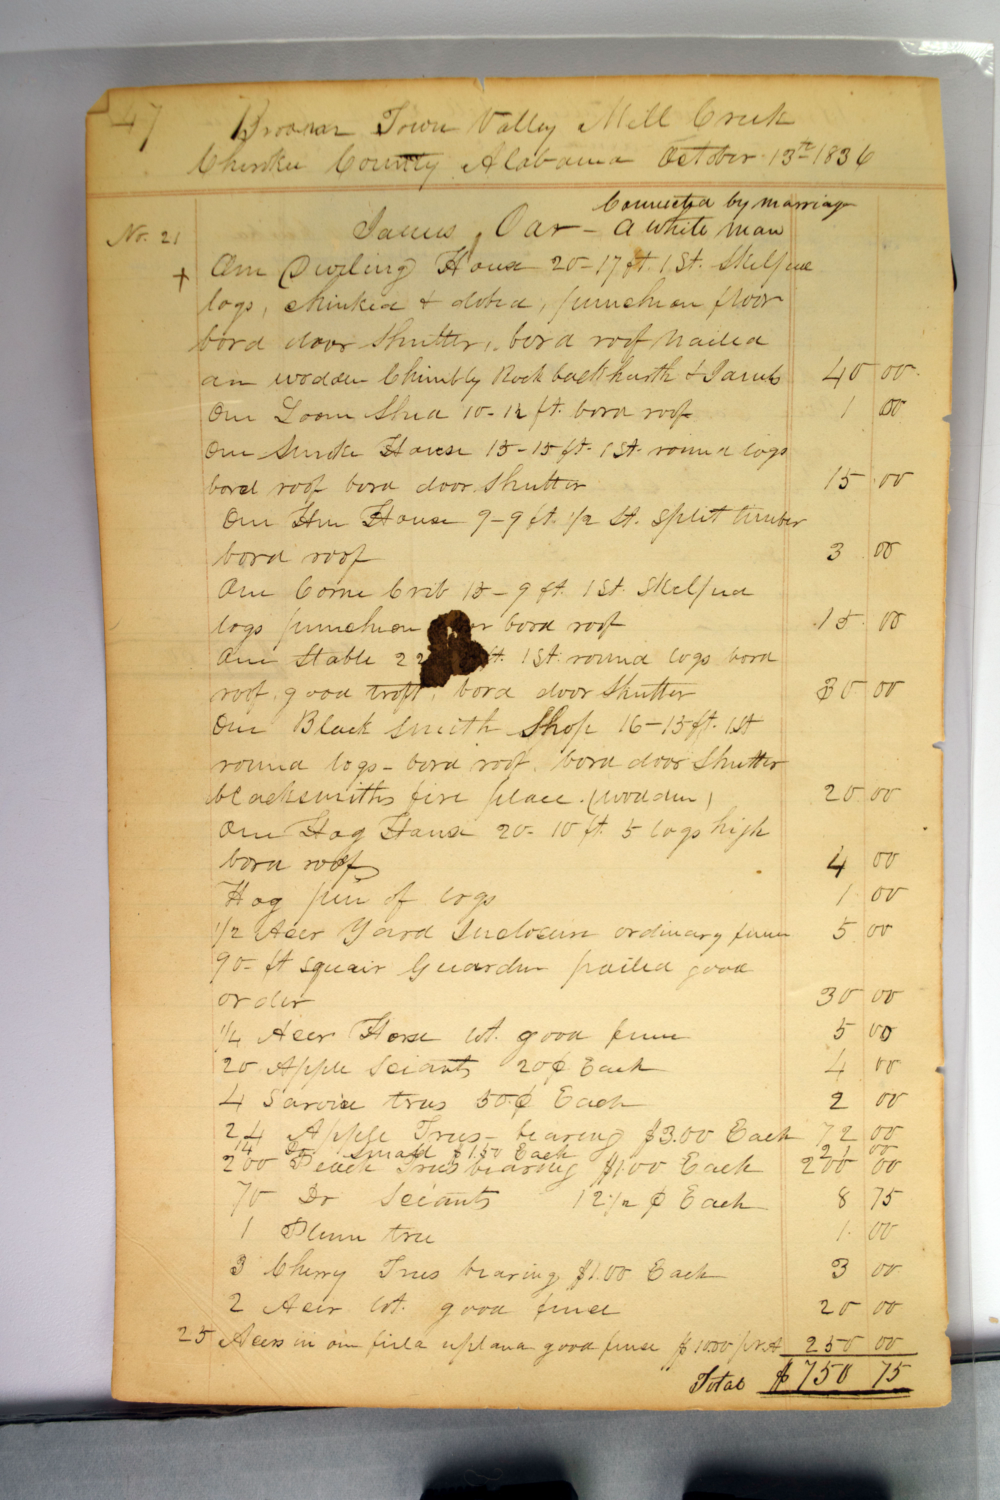 47
Brooner Town Valley Mill Creek
Cherokee County Alabama October 13th 1836
Connected by marriage
No. 21 James Oar - a white man
+ One Dwelling House 20-17 ft. 1 St. Skelped
logs, chinked & dobed, puncheon floor
bord door Shutter, bord roof nailed
an wooden Chimbly Rock back harth & Jambs 40 00
One Loom Shed 10-12 ft. bord roof 1 00
One Smoke House 15-15 ft. 1 St. round logs
bord roof bord door Shutter 15 00
One Hen House 9-9 ft. 1/2 St. Split timber
bord roof 3 00
One Corne Crib 15-9 ft. 1 St. Skelped
logs puncheon bord roof 15 00
One Stable 22 ft. 1 St. round logs bord
roof, good troft, bord door Shutter 30 00
One Black Smith Shop 16-15 ft. 1 St
round logs - bord roof. bord door Shutter
blacksmiths fire place. (wooden) 20 00
One Hog House 20-10 ft. 5 logs high
bord roof 4 00
Hog pen of logs 1 00
1/2 Acer Yard Inclosure ordinary fence 5 00
90-ft Squair Guarden pailed good
order 30 00
1/4 Acer Horse lot. good fence 5 00
20 Apple Scients 20¢ Each 4 00
4 Sarvice trees 50¢ Each 2 00
24 Apple Trees - bearing $3.00 Each 72 00
14 Do Small $1.50 Each 21 00
200 Peach Trees bearing $1.00 Each 200 00
70 Do Scients 12 1/2 ¢ Each 8 75
1 Plum tree 1. 00
3 Cherry Trees bearing $1.00 Each 3 00
2 Acer lot. good fence 20 00
25 Acers in one field upland good fense $10.00 pr. A 250 00
Total $750 75